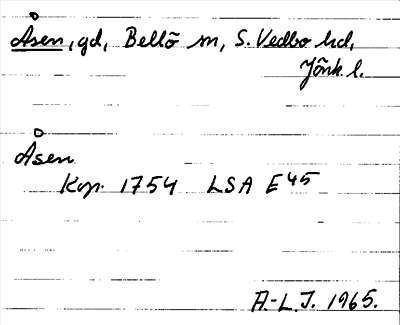 Åsen, gd, Bellö sn, S. Vedbo hd,
Jönk. l.
Åsen
Kop. 1754 LSA E45
A.-L.J. 1965.